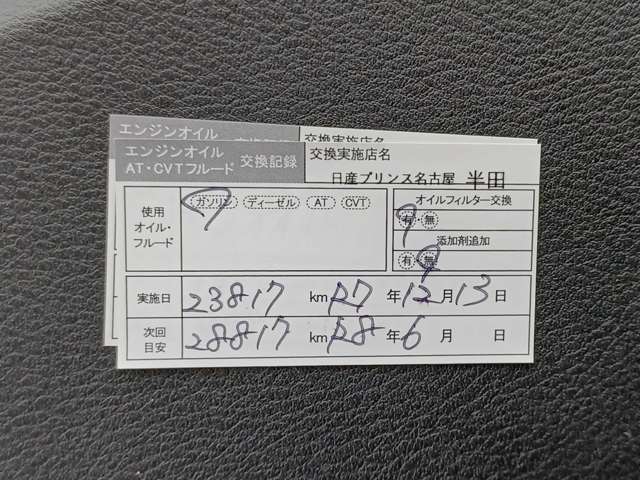 エンジンオイル
交換実施店名
エンジンオイル
AT・CVTフルード 交換記録
交換実施店名
日産プリンス名古屋 半田
使用
オイル・
フルード
ガソリン ディーゼル AT CVT
オイルフィルター交換
有・無
添加剤追加
有・無
実施日 23817 km R7 年 12 月 13 日
次回
目安
28817 km R8 年 6 月 日